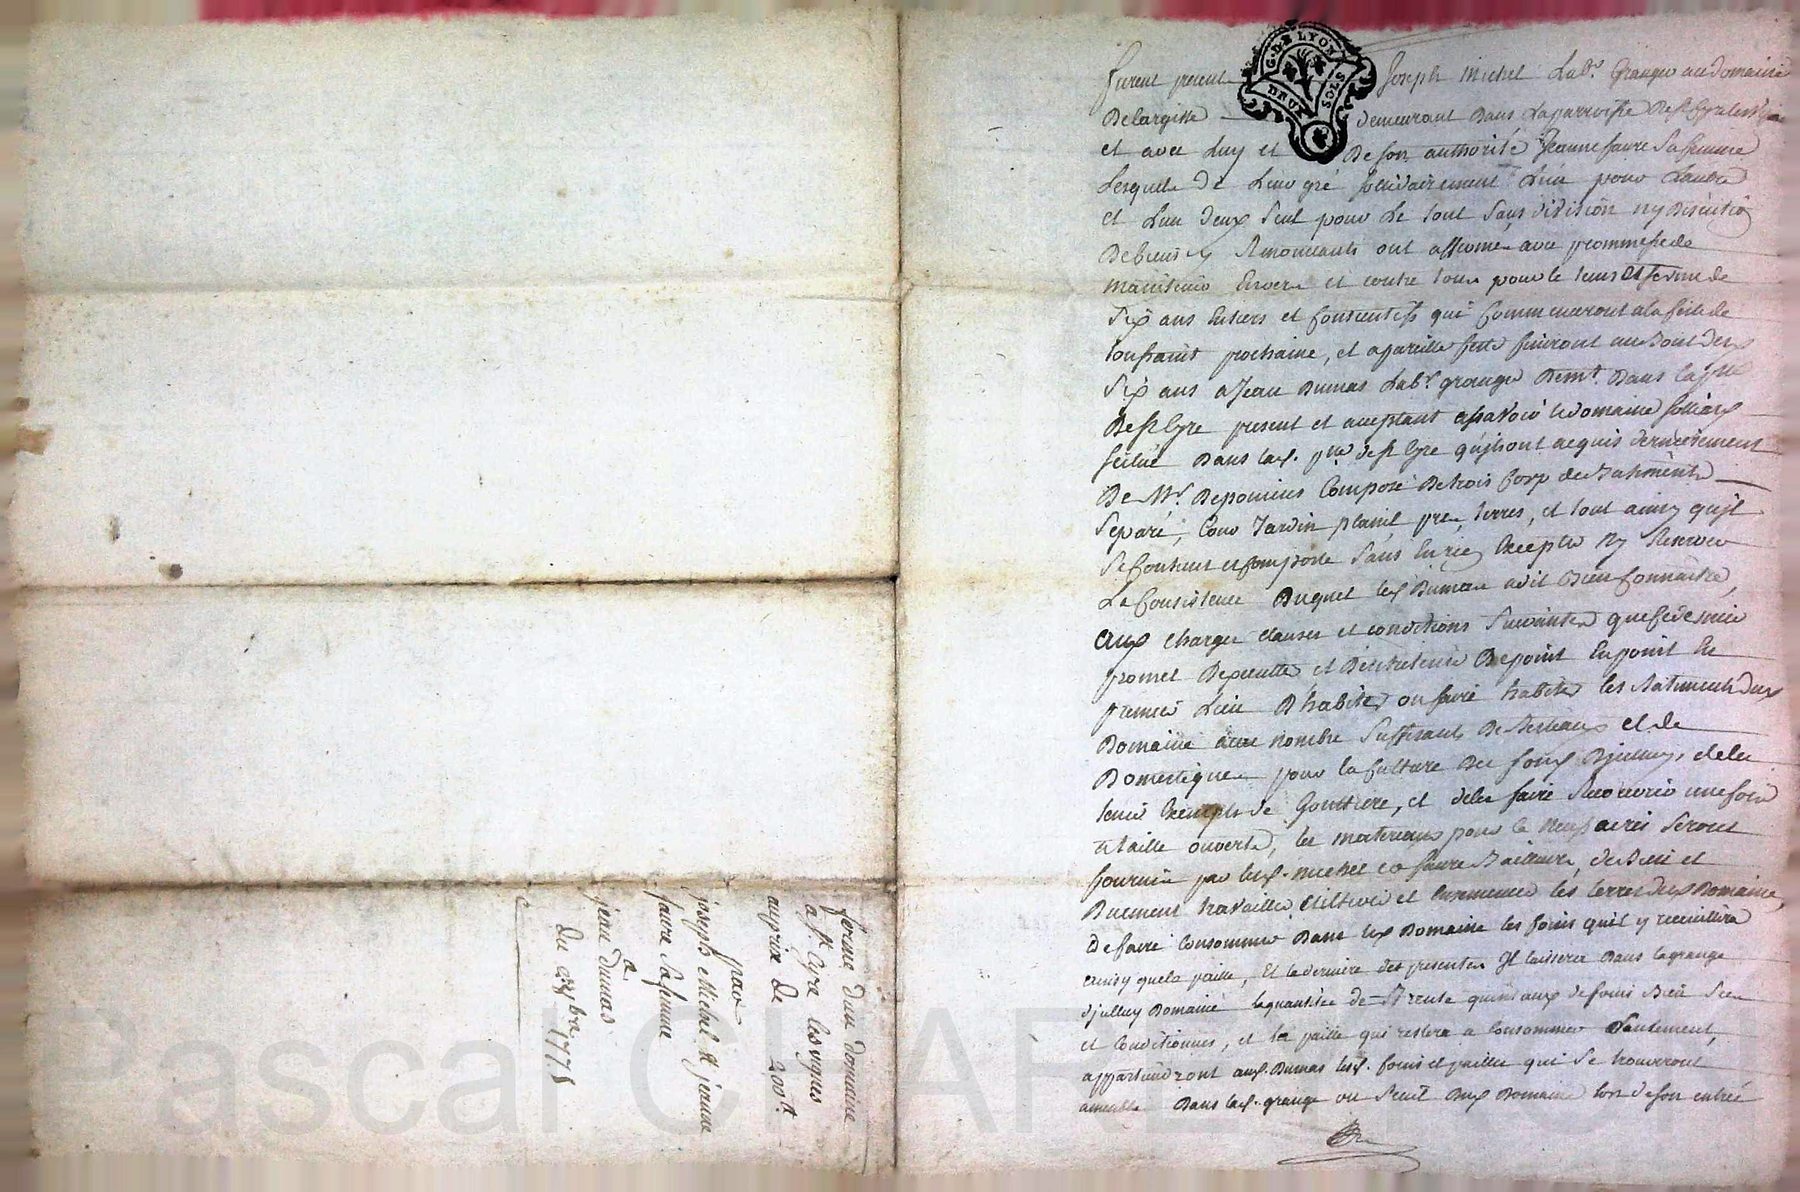 G. DE LYON
DEUX SOLS
furent present Joseph Michel Labr. Granger au domaine
Delargille demeurant dans Laparroisse de st Cyr les Vignes
et avec Luy et De son authorité Jeanne faure Sa femme
Lesquels de Leur gré solidairement L'un pour Lautre
et L'un deux seul pour Le tout sans division ny discution
De biens y Renoncants ont affermé avec prommesse de
maintenir Envers et contre tous pour le tems et terme de
six ans Entiers et consecutifs qui commenceront a la fete de
toussaint prochaine, et a pareille fette finiront au bout desx
six ans a Jean Dumas Labr. granger Demt. Dans lax
De st Cyre present et aceptant assavoir le domaine
scitué Dans lax. psse de st Cyre quils ont acquis dernierement
De Mr. Deponcins Composé de trois corp de Batiments
separé, Cour Jardin plant pres, terres, et tout ainsy quil
Se Contient et comporte sans En rien Excepter ny Reserver
La Consistence Duquel lex Dumas a dit Bien Connaitre,
aux charges clauses et conditions suivantes que ce dernier
promet Dexecutter et Dentretenir De point En point En
premier Lieu D'habiter ou faire habiter les Batiments dux
Domaine avec nombre suffisants de Bestiaux et de
Domestiques pour la Culture des fonds Diceluy, de les
tenir Exempts de Gouttiere, et de les faire Recouvrir une fois
a taille ouverte, les materiaux pour ce necessaires seront
fournis par lesx. michel et faure Bailleurs, de Bien et
Duement travailler Cultiver et Ensemencer les terres dux Domaine,
De faire Consommer Dans lex Domaine les foins quil y recueillira
ainsy que la paille, Et la derniere des presentes Il laissera Dans la grange
Djelluy Domaine la quantitée de Trente quintaux de foins Bien Sec
et Conditionnés, et la paille qui restera a Consommer Seulement,
appartiendront aux. Dumas lesx. foins et pailles qui se trouveront
Dans lax. grange ou feuil Dux Domaine lors de son entrée
ferme d'un domaine
a st. Cyre les vignes
au prix de 200 lt.
par
joseph Michel et jeanne
faure Sa femme
a
jean dumas
Du bre 1775
Pascal CHARETIOT